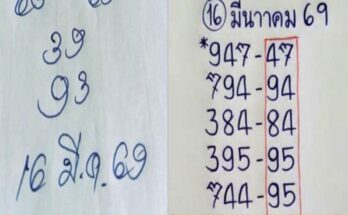 39
93
16 มี.ค. 69
16 มีนาาคม 69
*947-47
794-94
384-84
395-95
744-95